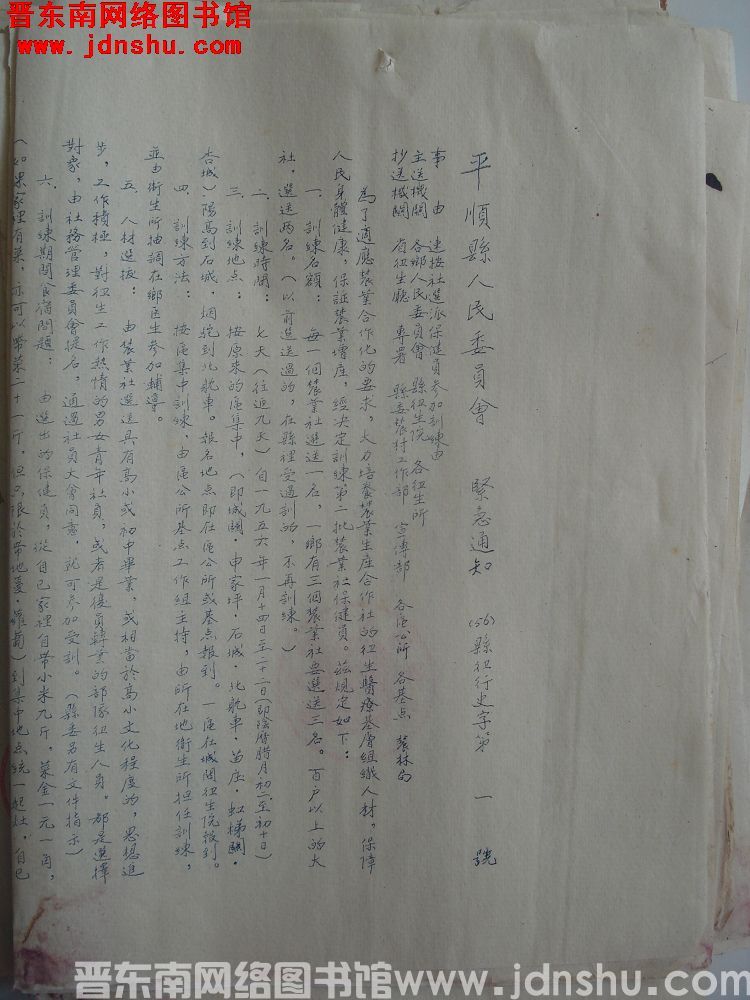 晋东南网络图书馆
www.jdnshu.com
平順縣人民委員會 緊急通知 (56)縣卫行史字第 一 號
事由 速按社選派保健員参加訓練由
主送機関 各鄉人民委員會 縣卫生院 各卫生所
抄送機関 省卫生廳 專署 縣委農村工作部 宣傳部 各區公所 各基点 農林局
為了適應農業合作化的要求,大力培養農業生產合作社的卫生醫療基層組織人材,保障
人民身體健康,保証農業增產,經决定訓練第二批農業社保健員。兹规定如下:
一、訓練名額: 每一個農業社選送一名,一鄉有三個農業社要選送三名。百户以上的大
社,選送两名。(以前選送過的,在縣裡受過訓的,不再訓練。)
二、訓練時間: 七天(往返九天)自一九五六年一月十四日至二十二日(即陰曆腊月初二至初十日)
三、訓練地点: 按原來的區集中,(即城関、申家坪、石城、北耽車、苗庄、虹梯関、
杏城)陽高到石城,烟驼到北耽車。報名地点即在區公所或基点報到。一區在城関卫生院报到。
四、訓練方法: 按區集中訓練,由區公所基点工作組主持,由所在地衛生所担任訓練,
並由衛生所抽調在鄉医生参加輔導。
五、人材選拔: 由農業社選送具有高小或初中畢業,或相當於高小文化程度的,思想進
步,工作積極,對卫生工作熱情的男女青年社員,或者是復員轉業的部隊卫生人員。都是選擇
對象,由社務管理委員會提名,通過社員大會同意,就可参加受訓。(縣委另有文件指示)
六、訓練期間食宿問題: 由選出的保健員,從自己家裡自带小米九斤,菜金一元一角,
(如果家裡有菜,亦可以带菜二十一斤,但只限於带地蔓、蘿蔔)到集中地点統一起灶,自己
晋东南网络图书馆www.jdnshu.com